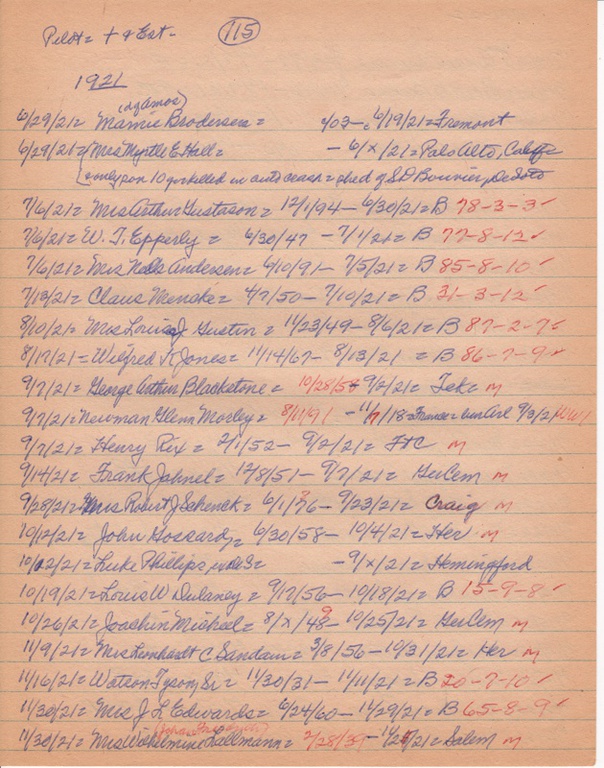 Pilot = + & Ext - 115
1921
(dg Amos)
6/29/21 = Mamie Brodersen = 4/03 - 6/19/21 = Fremont
6/29/21 = Mrs Myrtle E. Hall = - 6/x/21 = Palo Alto, Calif
7/6/21 = Mrs Arthur Gustason = 12/1/94 - 6/30/21 = B 78-3-3 ✓
7/6/21 = W. T. Epperly = 6/30/47 - 7/1/21 = B 77-8-12 ✓
7/6/21 = Mrs Nels Andersen = 6/10/91 - 7/5/21 = B 85-8-10 ✓
7/13/21 = Claus Menske = 4/7/50 - 7/10/21 = B 31-3-12 ✓
8/10/21 = Mrs Louisa J Gustin = 11/23/49 - 8/6/21 = B 87-2-7 ✓
8/17/21 = Wilfred K Jones = 11/14/67 - 8/13/21 = B 86-7-9 ✓
9/7/21 = George Arthur Blackstone = 10/28/54 9/2/21 = Tek = M
9/7/21 = Newman Glenn Morley = 8/11/91 - 11/7/18 = France = bur Arl 9/3/21 WW1
9/7/21 = Henry Rix = 2/1/52 - 9/2/21 = FtC M
9/14/21 = Frank Jahnel = 12/8/51 - 9/7/21 = GerCem M
9/28/21 = Mrs Robert J Schenck = 6/1/76 - 9/23/21 = Craig M
10/12/21 = John Gossard = 6/30/58 - 10/4/21 = Her M
10/12/21 = Luke Phillips, - 9/x/21 = Hemingford
10/19/21 = Louis W Dulaney = 9/17/56 - 10/18/21 = B 15-9-8 ✓
10/26/21 = Joachin Michael = 8/x/48 9 - 10/25/21 = GerCem M
11/9/21 = Mrs Leonhardt C Sandau = 3/8/56 - 10/31/21 = Her M
11/16/21 = Watson Tyson, Sr = 11/30/31 - 11/11/21 = B 20-7-10 ✓
11/30/21 = Mrs J L Edwards = 6/24/60 - 11/29/21 = B 65-8-9 ✓
11/30/21 = Mrs Wilhelmine Lallmann = 2/28/39 - 11/25/21 = Salem M